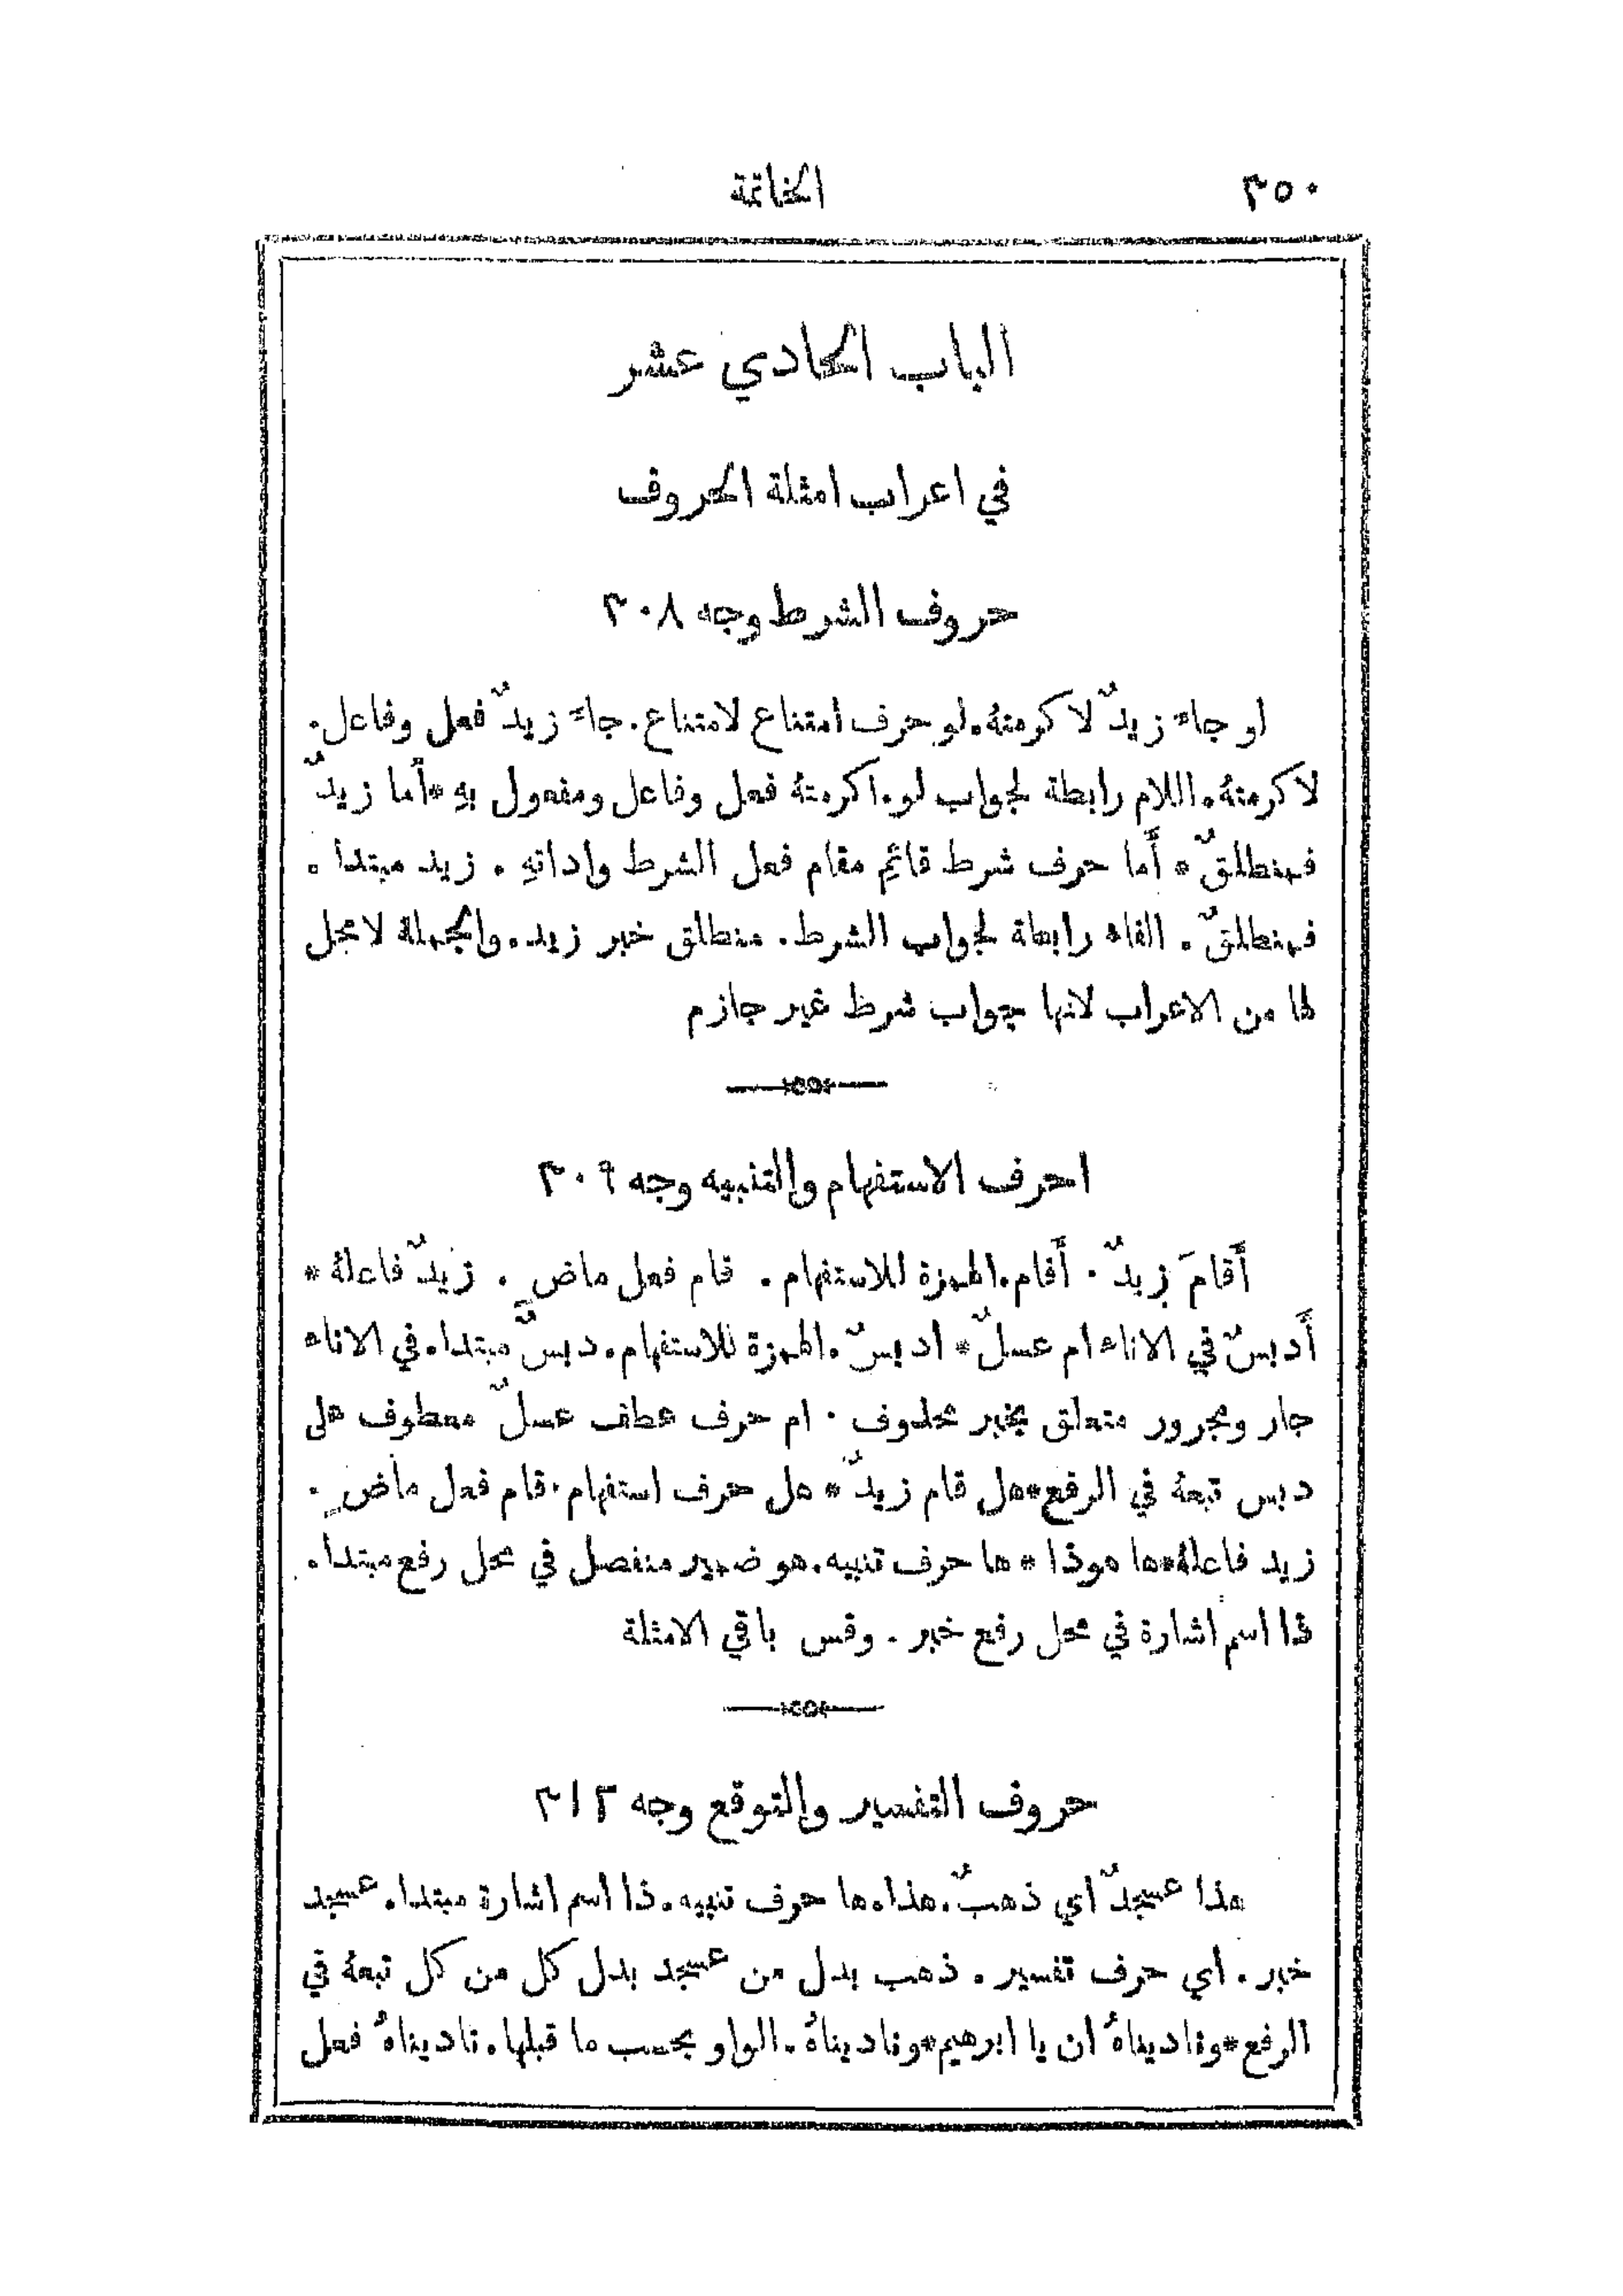 ٣٥٠ الخاتمة
الباب الحادي عشر
في اعراب امثلة الحروف
حروف الشرط وجه ٣٠٨
لو جاء زيدٌ لاكرمتهُ. لو حرف امتناع لامتناع. جاء زيدٌ فعل وفاعل.
لاكرمتهُ. اللام رابطة لجواب لو. اكرمتهُ فعل وفاعل ومفعول بهِ * أَما زيدٌ
فمنطلقٌ * أَما حرف شرط قائم مقام فعل الشرط واداتهِ. زيد مبتدا.
فمنطلقٌ. الفاء رابطة لجواب الشرط. منطلق خبر زيد. والجملة لا محل
لها من الاعراب لانها جواب شرط غير جازم
احرف الاستفهام والتنبيه وجه ٣٠٩
أَقامَ زيدٌ. أَقام. الهمزة للاستفهام. قام فعل ماضٍ. زيدٌ فاعلهُ *
أَدبسٌ في الاناء ام عسلٌ * ادبسٌ. الهمزة للاستفهام. دبسٌ مبتدا. في الاناء
جار ومجرور متعلق بخبر محذوف. ام حرف عطف عسلٌ معطوف على
دبس تبعهُ في الرفع * هل قام زيدٌ * هل حرف استفهام. قام فعل ماضٍ.
زيد فاعلهُ * ها هوذا * ها حرف تنبيه. هو ضمير منفصل في محل رفع مبتدا.
ذا اسم اشارة في محل رفع خبر. وقس باقي الامثلة
حروف التفسير والتوقع وجه ٣١٢
هذا عسجدٌ اي ذهبٌ. هذا. ها حرف تنبيه. ذا اسم اشارة مبتدا. عسجد
خبر. اي حرف تفسير. ذهب بدل من عسجد بدل كل من كل تبعهُ في
الرفع * وناديناهُ ان يا ابرهيم * وناديناهُ. الواو بحسب ما قبلها. ناديناهُ فعل